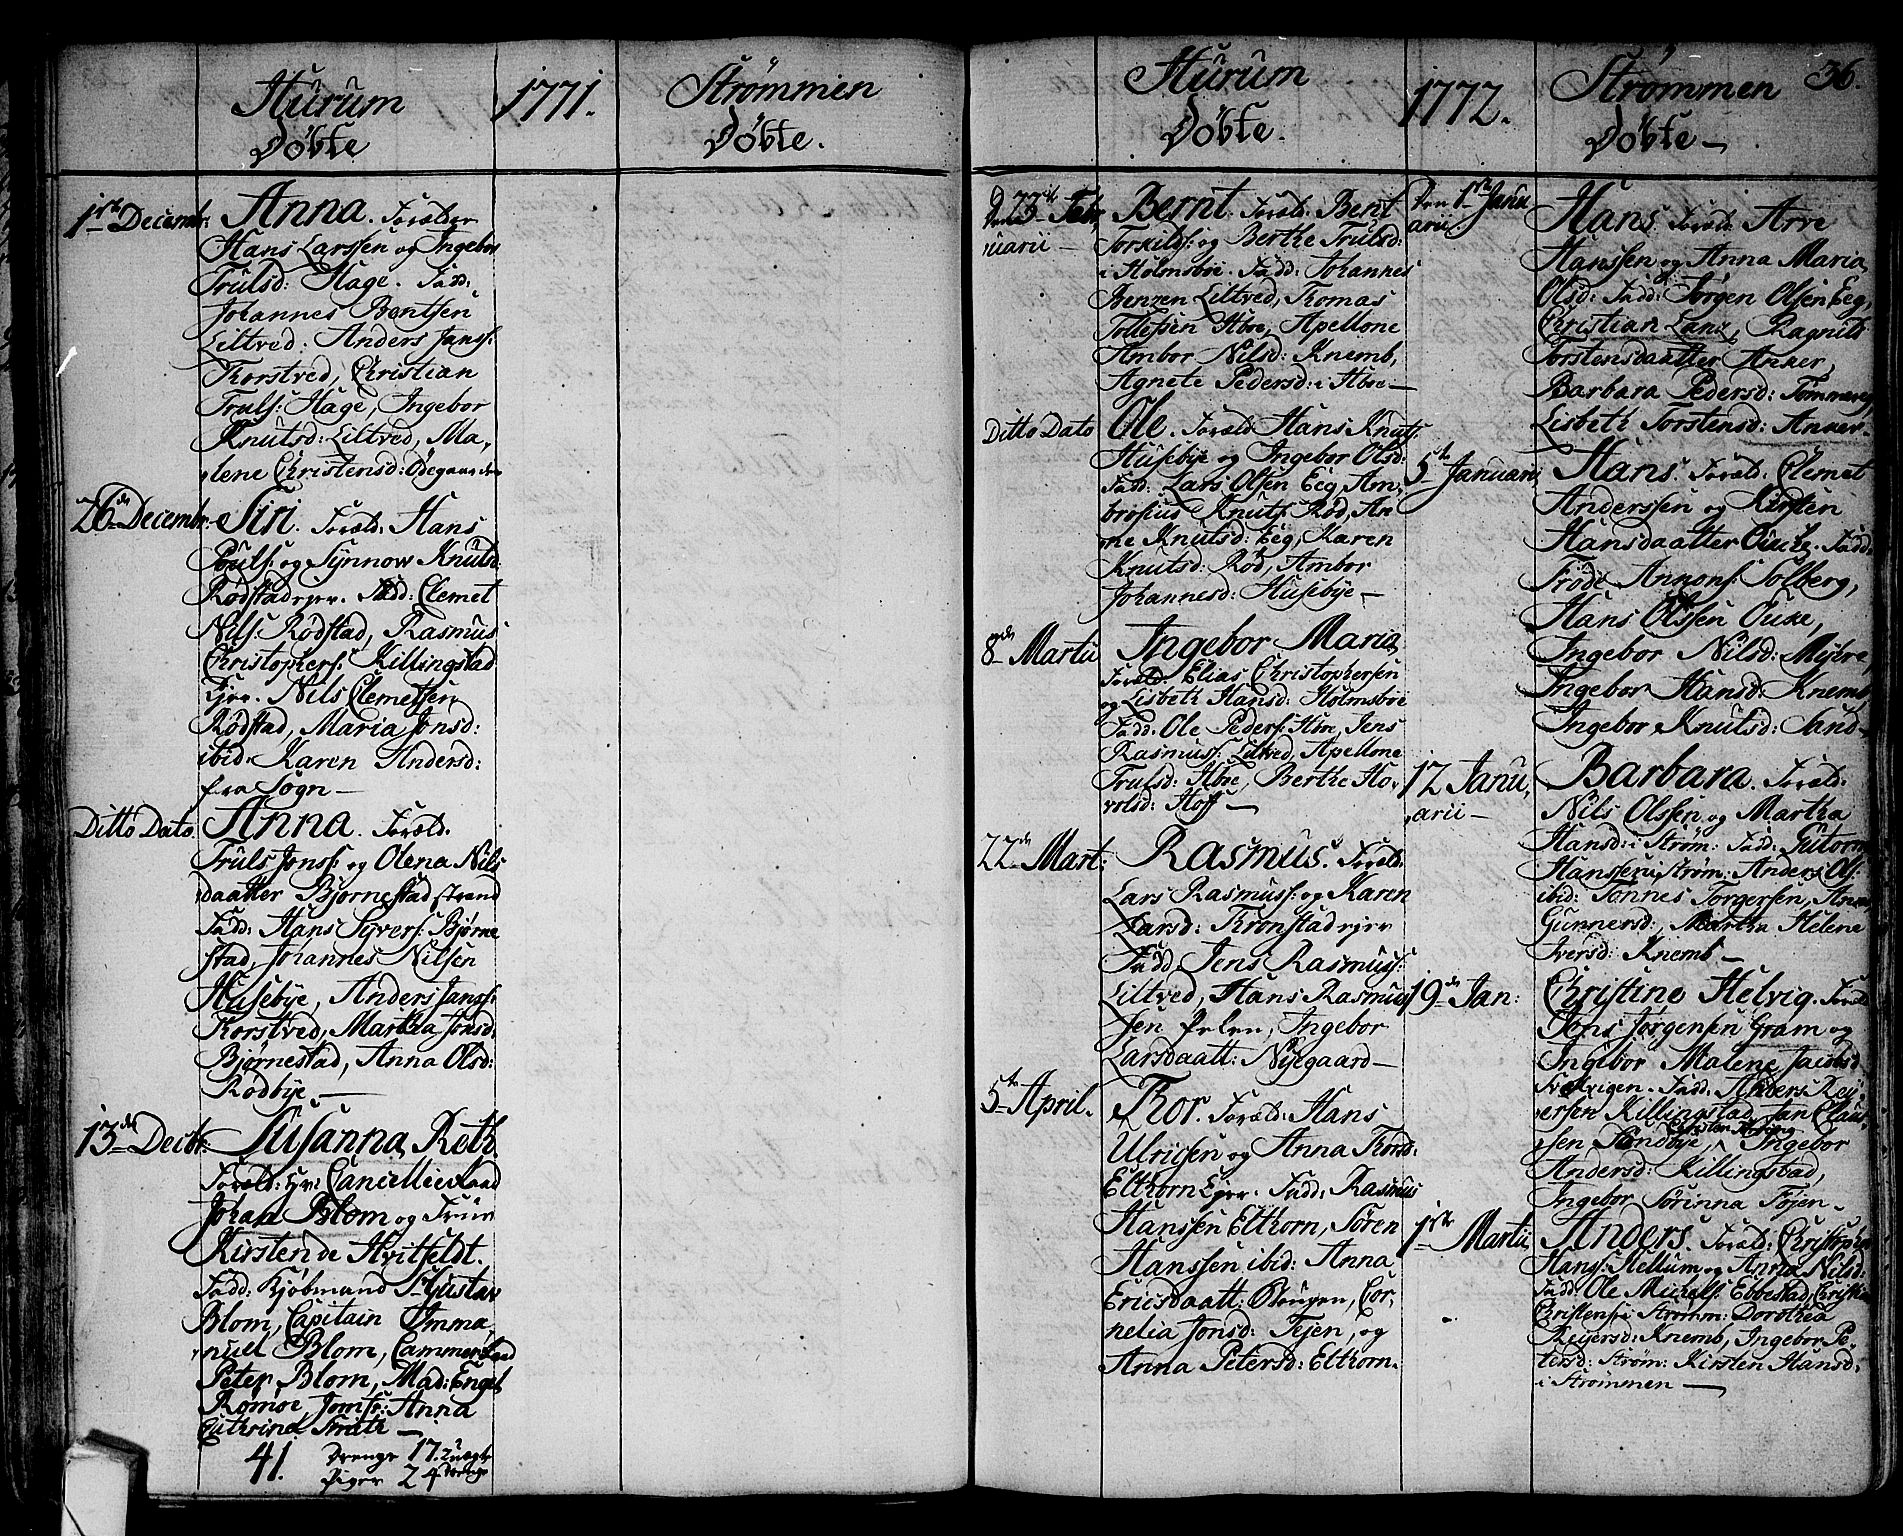 Hurum
Døbte
1771.
Strømmen
Døbte.
1ste Decembr:
Anna. Foræld̄er
Hans Larssen og Ingebor
Trulsd: Hage. Fadd:
Johannes Bentsen
Liltved. Anders Jansſ:
Korstved, Christian
Trulſ: Hage, Ingebor
Knutsd: Liltved, Ma,
lene Christensd: Ødegaarden
26de Decembr:
Siri. Foræld: Hans
Poulſ: og Synnow Knutsd.
Rødstadejer. Fadd: Clemet
Nilſ: Rødstad, Rasmus
Christopherſ: Killingstad
Ejer. Nils Clemetsen
Rødstad, Maria Jonsd:
ibid: Karen Andersd:
fra Sogn —
Ditto Dato.
Anna. Foræld.
Truls Jonsſ: og Olena Nils
daatter Bjørnestad strand
Fadd: Hans Syverſ: Bjørne
stad, Johannes Nilsen
Husebye, Anders Jansſ:
Korstved, Martha Jonsd.
Bjørnestad, Anna Olsd:
Rødbye. —
13de Decbr:
Susanna Reth.
Foræld: Hr: Cancellieraad
Johan Blom og Frue
Kirsten de Hvitfeldt.
Fadd: Kjøbmand Sr Gustav
Blom, Capitain Imma,
nuel Blom, Cammerraad
Peter Blom, Mad: Engel
Rømøe, Jomfr: Anna
Cathrine
41. Drenge 17.
Piger 24
Hurum
Døbte.
1772.
Strømmen
Døbte —
36.
Den 23de Febr,
uarii —
Bernt. Foræld: Bent
Torkildſ: og Berthe Trulsd:
i Holmsboe. Fadd: Johannes
Benzen Liltved, Thomas
Tollefsen Hboe, Apellone
Ambor Nilsd: Knemb,
Agnete Pedersd: i Hboe —
Ditto Dato
Ole. Foræld. Hans Knutſ.
Husebye og Ingebor Olsd:
Fadd: Lars Olsen Eeg, Am,
brosius Knutſ: Rød, An
ne Knutsd: Eeg, Karen
Knutsd: Rød, Ambor
Johannesd: Husebye —
8de Martii
Ingebor Maria
Foræld. Elias Christophersen
og Lisbeth Hansd: Holmsboe
Fadd. Ole Pederſ: Hboe, Jens
Rasmusſ: Liltved, Apellone
Trulsd: Hboe, Berthe Ho,
volsd: Hoff —
22de Mart:
Rasmus. Foræld:
Lars Rasmusſ: og Karen
Larsd: Tronstadejer
Fadd. Jens Rasmusſ:
Liltved, Hans Rasmus
sen, Ingebor
Larsdaatt: Nyegaard —
5te April.
Thor. Foræld: Hans
Ulricsen og Anna Thorsd.
Elthorn Ejer. Fadd: Rasmus
Hanssen Elthorn, Søren
Hanssen ibid: Anna
Ericsdaatt:, Cor,
nelia Jonsd: Tejen, og
Anna Petersd: Elthorn.
Den 1ste Janu
arii.
Hans. Foræld: Arve
Hanssen og Anna Maria
Olsd: Fadd: Jørgen Olsen Eeg,
Christian Lanz, Ragnild
Torstensdaatter Anker,
Barbara Pedersd:
Lisbeth Torstensd: Anker.
5te Januarii
Hans. Foræld. Clemet
Anderssen og Kirsten
Hansdaatter. Fadd:
Frode Annonſ: Solberg,
Hans Olssen,
Ingebor Nilsd: Myhre,
Ingebor Hansd: Knemb
Ingebor Knutsd: Sand —
12 Janu,
arii —
Barbara. Foræld:
Nils Olssen og Martha
Hansd: i Strøm: Fadd: Gutorm
Hanssen i Strøm: Anders Olſ:
ibid: Tønnes Torgersen, Anne
Gunnersd: Martha Helene
Iversd: Knemb —
19de Jan:
Christine Helvig. Foræld
Jens Jørgensen Gram og
Ingebor Malene Jacobsd
Svelvigen. Fadd: Anders Rei,
ersen Killingstad, Jan Claus,
sen Sundbye, Ingebor
Andersd: Killingstad,
Ingebor Sørinna Føjen —
1ste Martii
Anders. Foræld: Christopher
Hansſ: Hellum og Anna Nilsd:
Fadd: Ole Michelſ: Ebbestad, Christian
Christensſ: i Strømm: Dorothea
Reijersd: Knemb, Ingebor Pe,
tersd: Strøm: Kirsten Hansd:
i Strømmen —